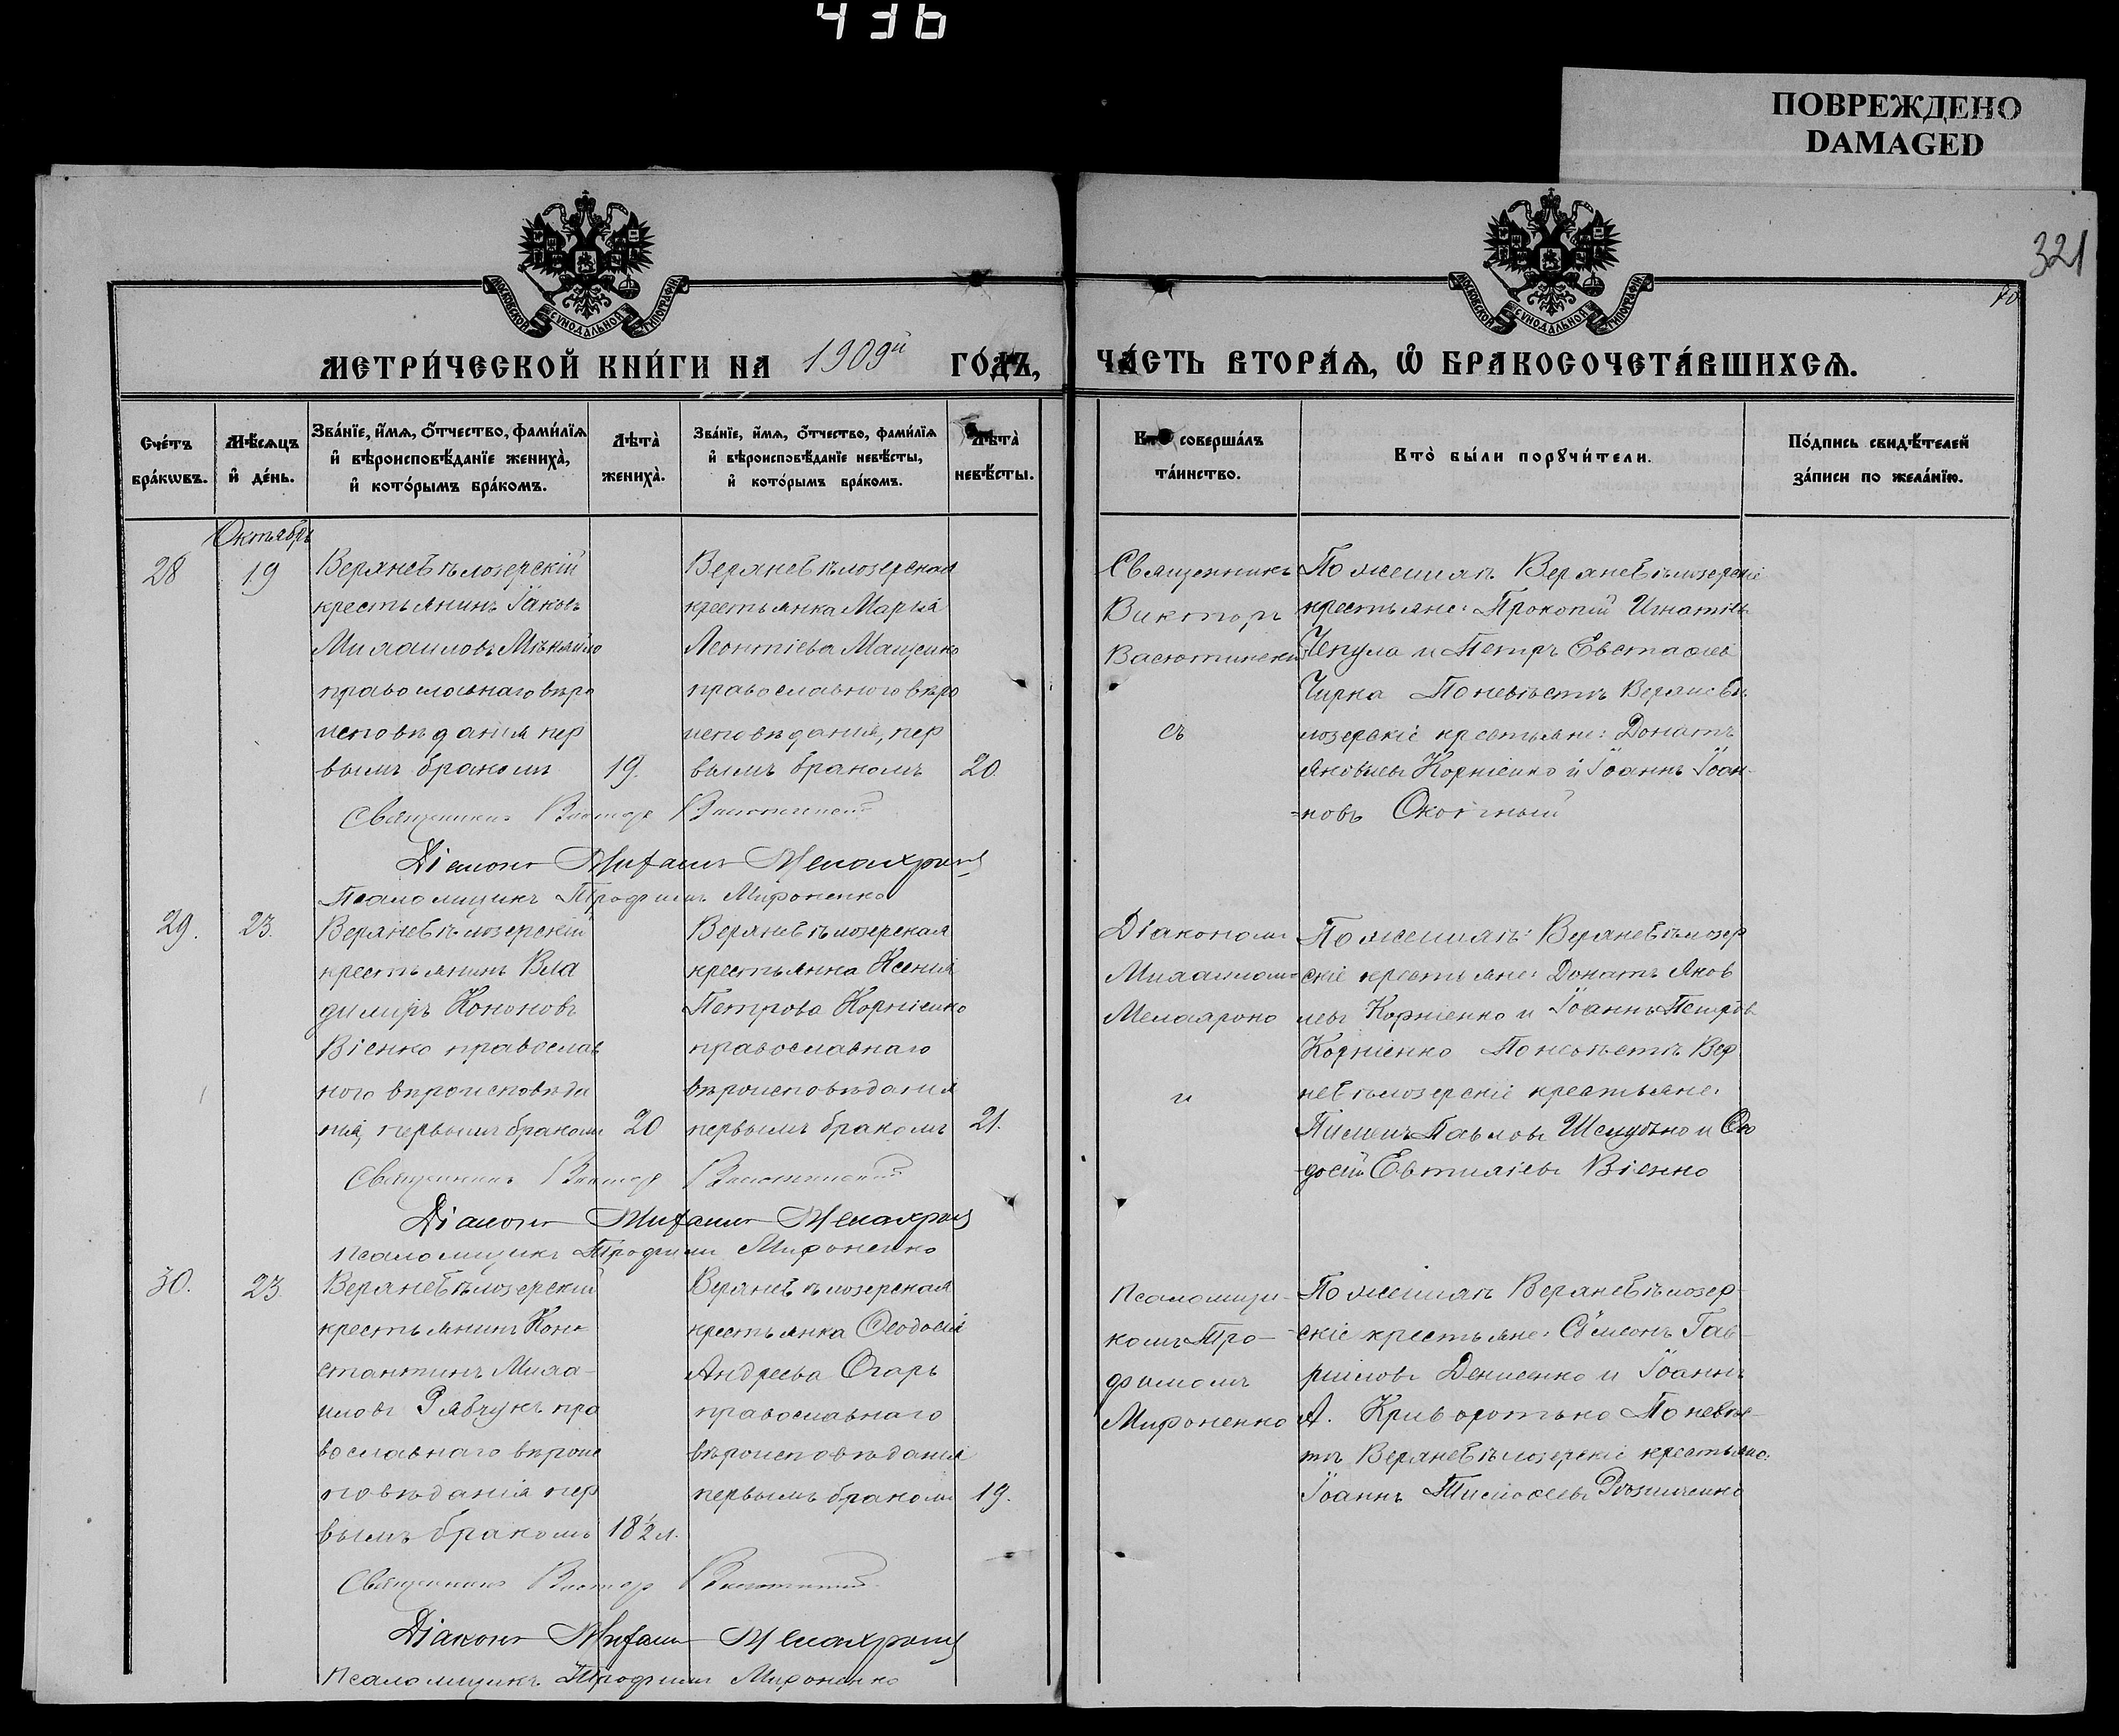 436
ПОВРЕЖДЕНО
DAMAGED
321
МОСКОВСКОЙ СѴНОДАЛЬНОЙ ТИПОГРАФІИ
МОСКОВСКОЙ СѴНОДАЛЬНОЙ ТИПОГРАФІИ
МЕТРИ́ЧЕСКОЙ КНИ́ГИ НА 1909й ГО́ДЪ,
ЧА́СТЬ ВТОРА́Ѧ, Ѽ БРАКОСОЧЕТА́ВШИХСѦ.
Сче́тъ бра́кѡвъ.
Мѣ́сяцъ и҆ де́нь.
Зва́нїе, и҆́мѧ, ѻ҆́тчество, фами́лїѧ
и҆ вѣроисповѣ́данїе жениха̀,
и҆ кото́рымъ бра́комъ.
Лѣта̀ жениха̀.
Зва́нїе, и҆́мѧ, ѻ҆́тчество, фами́лїѧ
и҆ вѣроисповѣ́данїе невѣ́сты,
и҆ кото́рымъ бра́комъ.
Лѣта̀ невѣ́сты.
Кто̀ соверша́лъ та́инство.
Кто̀ бы́ли порꙋчи́тели.
По́дпись свидѣ́телей
за́писи по жела́нїю.
Октябрь
28
19
Верхнебѣлозерскій
крестьянинъ Іаковъ
Михаиловъ
православнаго вѣро
исповѣданія пер
вымъ бракомъ
19.
Верхнебѣлозерская
крестьянка Марія
Леонтіева Мащенко
православного вѣро
исповѣданія, пер
вымъ бракомъ
20.
Священникъ
Викторъ
Васютинскі
съ
По женихѣ Верхнебѣлозерскіе
крестьяне: Прокопій Игнатіевъ
Чепула и Петръ Евстафіевъ
Чирка По невѣстѣ Верхнебѣ
лозерскіе крестьяне: Донатъ
Яковлевъ Корніенко и Іоаннъ Іоан-
=новъ
Священникъ Викторъ Васютинскій
Діаконъ Михаилъ Мелахроно
Псаломщикъ Трофимъ Мироненко
29.
23.
Верхнебѣлозерскій
крестьянинъ Вла
димиръ Кононовъ
Віенко православ
ного вѣроисповѣда
нія, первымъ бракомъ
20
Верхнебѣлозерская
крестьянка Ксенія
Петрова Корніенко
православнаго
вѣроисповѣданія
первымъ бракомъ
21.
Діакономъ
Михаиломъ
Мелахроно
и
По женихѣ: Верхнебѣлозер
скіе крестьяне: Донатъ Яков
левъ Корніенко и Іоаннъ Петров
Корніенко По невѣстѣ Верх
небѣлозерскіе крестьяне:
Пименъ Павловъ и Ѳео
досій Евтихіевъ Віенко
Священникъ Викторъ Васютинскій
Діаконъ Михаилъ Мелахроно
Псаломщикъ Трофимъ Мироненко
30.
23.
Верхнебѣлозерскій
крестьянинъ Кон
стантинъ Миха-
иловъ Рябчукъ пра
вославнаго вѣроис
повѣданія пер
вымъ бракомъ
18½ л.
Верхнебѣлозерская
крестьянка Ѳеодосія
Андреева Огарь
православнаго
вѣроисповѣданія
первымъ бракомъ
19.
Псаломщи-
комъ Тро-
фимомъ
Мироненко
По женихѣ Верхнебѣлозер-
скіе крестьяне: Сѵмеонъ Гав-
риловъ Денисенко и Іоаннъ
А. Криворотько По невѣс-
тѣ Верхнебѣлозерскіе крестьяне:
Іоаннъ
Священникъ Викторъ Васютинскій
Діаконъ Михаилъ Мелахроно
Псаломщикъ Трофимъ Мироненко